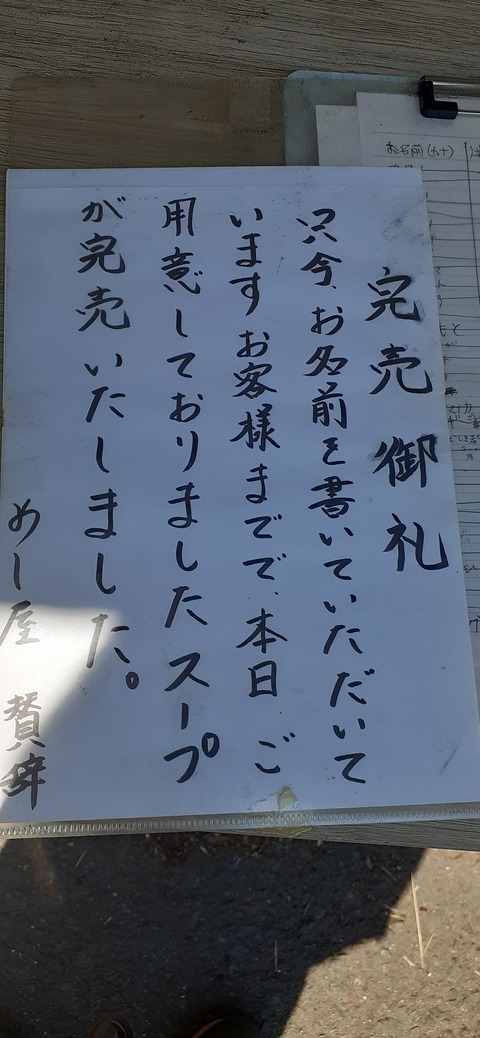 完売御礼
只今、お名前を書いていただいて
いますお客様までで、本日ご
用意しておりましたスープ
が完売いたしました。
めし屋 賛辞
お名前(カナ)